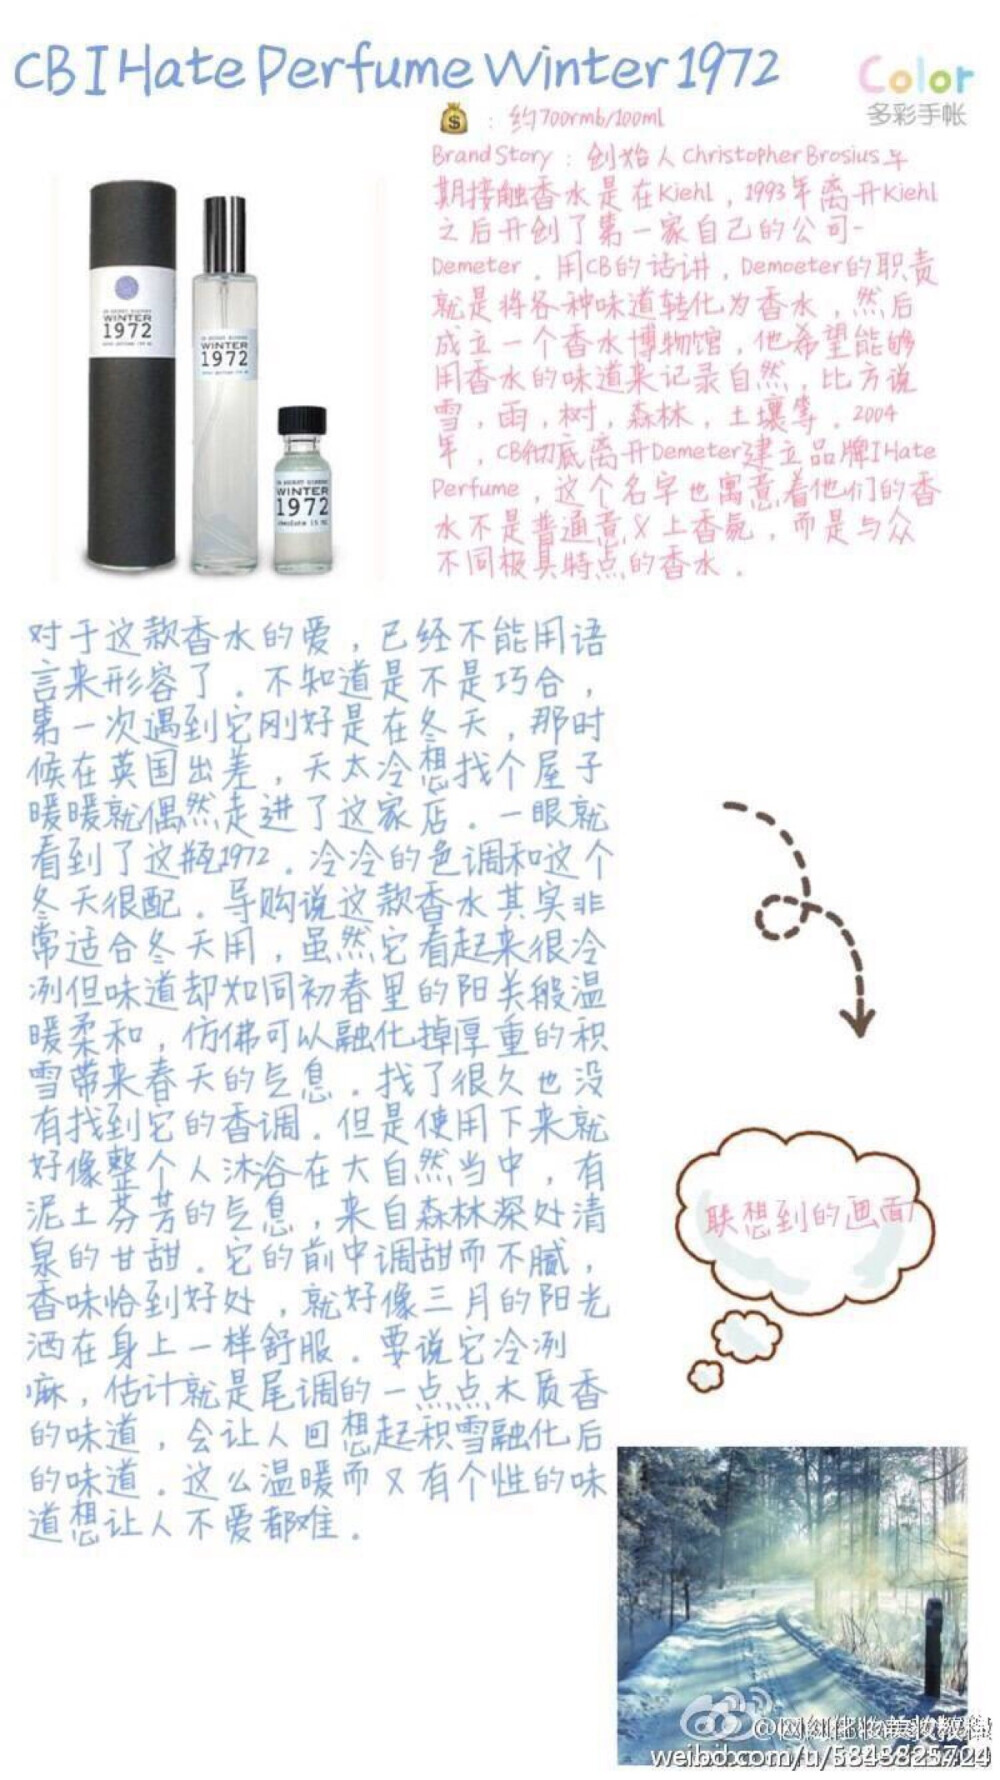 CB I Hate Perfume Winter 1972
Color
多彩手帐
：约700rmb/100ml
Brand Story：创始人Christopher Brosius早
期接触香水是在Kiehl，1993年离开Kiehl
之后开创了第一家自己的公司-
Demeter．用CB的话讲，Demoeter的职责
就是将各种味道转化为香水，然后
成立一个香水博物馆，他希望能够
用香水的味道来记录自然，比方说
雪，雨，树，森林，土壤等．2004
年，CB彻底离开Demeter建立品牌I Hate
Perfume，这个名字也寓意着他们的香
水不是普通意义上香氛，而是与众
不同极具特点的香水．
WINTER
1972
WINTER
1972
WINTER
1972
对于这款香水的爱，已经不能用语
言来形容了．不知道是不是巧合，
第一次遇到它刚好是在冬天，那时
候在英国出差，天太冷想找个屋子
暖暖就偶然走进了这家店．一眼就
看到了这瓶1972．冷冷的色调和这个
冬天很配．导购说这款香水其实非
常适合冬天用，虽然它看起来很冷
冽但味道却如同初春里的阳关般温
暖柔和，仿佛可以融化掉厚重的积
雪带来春天的气息．找了很久也没
有找到它的香调．但是使用下来就
好像整个人沐浴在大自然当中，有
泥土芬芳的气息，来自森林深处清
泉的甘甜．它的前中调甜而不腻，
香味恰到好处，就好像三月的阳光
洒在身上一样舒服．要说它冷冽
嘛，估计就是尾调的一点点木质香
的味道，会让人回想起积雪融化后
的味道．这么温暖而又有个性的味
道想让人不爱都难．
联想到的画面